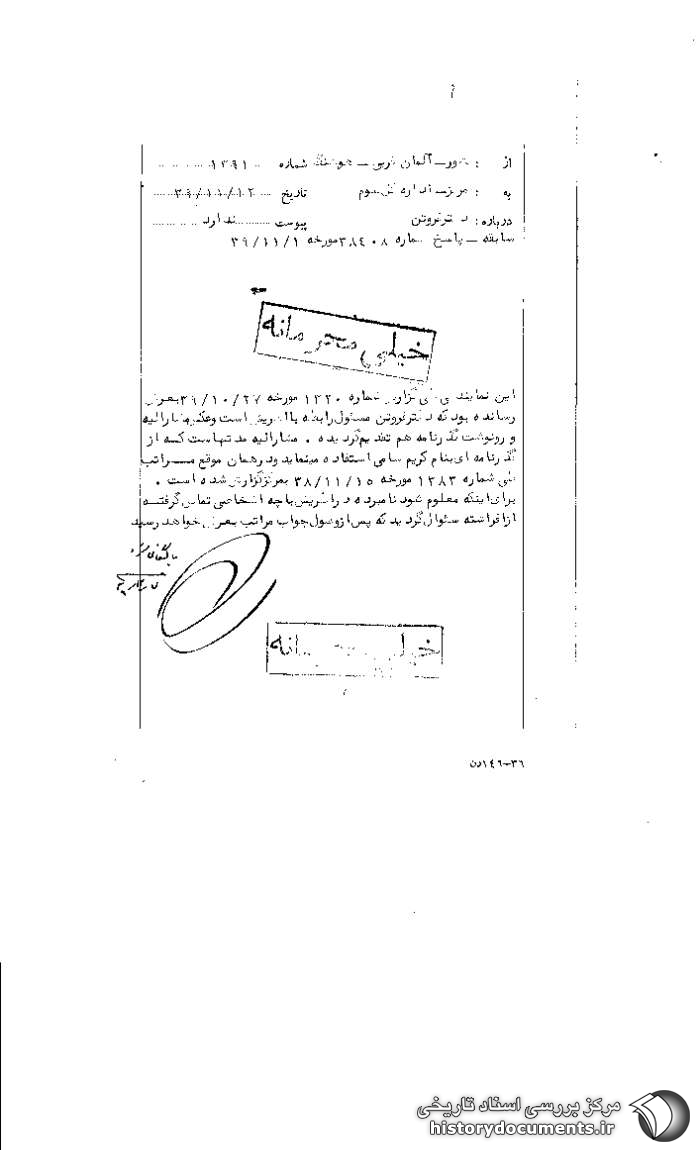 از : ـور ـ آلمان غربی ـ هوشنگ شماره ۱۳۹۱
به : مرکز ـ اداره کل سوم تاریخ ۳۹/۱۱/۱۲
درباره : دکتر فروتن پیوست ندارد
سابقه ـ پاسخ شماره ۳۸۴۰۸ مورخه ۳۹/۱۱/۱
خیلی محرمانه
این نمایندگی طی گزارش شماره ۱۳۲۰ مورخه ۳۹/۱۰/۲۷ بعرض
رسانده بود که دکتر فروتن مسئول رابطه با اطریش است وعکس مشارالیه
و رونوشت گذرنامه هم تقدیم گردیده . مشارالیه مدتهاست که از
گذرنامه ای بنام کریم سامی استفاده مینماید ودرهمان موقع مراتب
طی شماره ۱۲۸۳ مورخه ۳۸/۱۱/۱۵ بمرکز گزارش شده است .
برای اینکه معلوم شود نامبرده در اطریش با چه اشخاصی تماس گرفته
از افراشته سئوال گردید که پس از وصول جواب مراتب بعرض خواهد رسید
خیلی محرمانه
۳۶-۱۴۶دن
مرکز بررسی اسناد تاریخی
historydocuments.ir